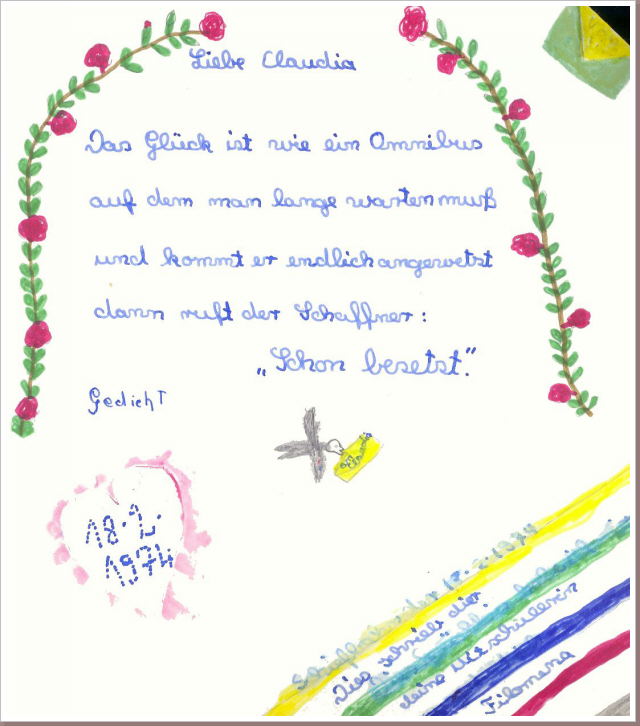 Liebe Claudia
Das Glück ist wie ein Omnibus
auf dem man lange warten muß
und kommt er endlich angewetzt
dann ruft der Schaffner:
„Schon besetzt."
Gedicht
18.2.
1974
den 18.2.1974
Dies schrieb dir
deine Mitschülerin
Filomena